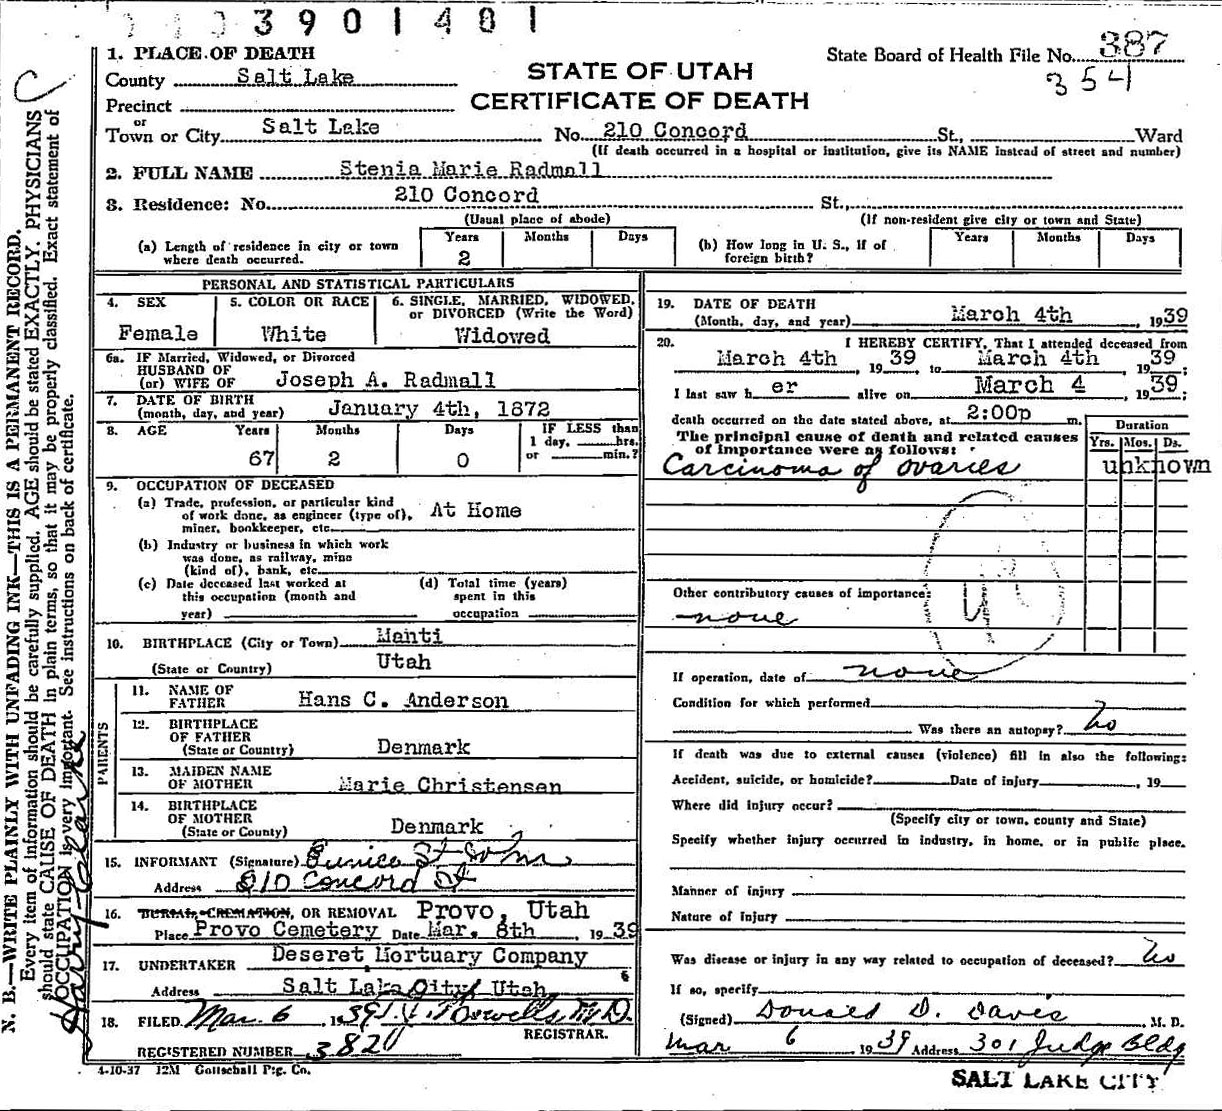 3901401
1. PLACE OF DEATH
State Board of Health File No. 387
354
County Salt Lake
STATE OF UTAH
Precinct
CERTIFICATE OF DEATH
or
Town or City Salt Lake No. 210 Concord St., Ward
(If death occurred in a hospital or institution, give its NAME instead of street and number)
2. FULL NAME Stenia Marie Radmall
3. Residence: No. 210 Concord St.,
(Usual place of abode) (If non-resident give city or town and State)
(a) Length of residence in city or town where death occurred. Years 2 Months Days
(b) How long in U. S., if of foreign birth? Years Months Days
PERSONAL AND STATISTICAL PARTICULARS
4. SEX Female
5. COLOR OR RACE White
6. SINGLE, MARRIED, WIDOWED, or DIVORCED (Write the Word) Widowed
6a. IF Married, Widowed, or Divorced
HUSBAND OF
(or) WIFE OF Joseph A. Radmall
7. DATE OF BIRTH
(month, day, and year) January 4th, 1872
8. AGE Years 67 Months 2 Days 0
IF LESS than
1 day, hrs.
or min.?
9. OCCUPATION OF DECEASED
(a) Trade, profession, or particular kind
of work done, as engineer (type of),
miner, bookkeeper, etc. At Home
(b) Industry or business in which work
was done, as railway, mine
(kind of), bank, etc.
(c) Date deceased last worked at
this occupation (month and
year)
(d) Total time (years)
spent in this
occupation
10. BIRTHPLACE (City or Town) Manti
(State or Country) Utah
PARENTS
11. NAME OF
FATHER Hans C. Anderson
12. BIRTHPLACE
OF FATHER
(State or County) Denmark
13. MAIDEN NAME
OF MOTHER Marie Christensen
14. BIRTHPLACE
OF MOTHER
(State or County) Denmark
15. INFORMANT (Signature) Eunice St John
Address 210 Concord St
16. BURIAL, CREMATION, OR REMOVAL Provo, Utah
Place Provo Cemetery Date Mar. 8th, 1939
17. UNDERTAKER Deseret Mortuary Company
Address Salt Lake City, Utah
18. FILED Mar. 6 1939 M.D.
REGISTRAR.
REGISTERED NUMBER 382
4-10-37 12M Gottschall P't'g. Co.
19. DATE OF DEATH
(Month, day, and year) March 4th, 1939
20. I HEREBY CERTIFY, That I attended deceased from
March 4th, 1939 to March 4th, 1939;
I last saw her alive on March 4, 1939;
death occurred on the date stated above, at 2:00p m.
The principal cause of death and related causes
of importance were as follows:
Duration
Yrs. Mos. Ds.
Carcinoma of ovaries unknown
Other contributory causes of importance:
none
If operation, date of none
Condition for which performed
Was there an autopsy? No
If death was due to external causes (violence) fill in also the following:
Accident, suicide, or homicide? Date of injury, 19
Where did injury occur?
(Specify city or town, county and State)
Specify whether injury occurred in industry, in home, or in public place.
Manner of injury
Nature of injury
Was disease or injury in any way related to occupation of deceased? No
If so, specify
(Signed) Donald D. Davis, M. D.
Mar 6 1939 Address 301 Judge Bldg
SALT LAKE CITY
N. B.—WRITE PLAINLY WITH UNFADING INK—THIS IS A PERMANENT RECORD.
Every item of information should be carefully supplied. AGE should be stated EXACTLY. PHYSICIANS
should state CAUSE OF DEATH in plain terms, so that it may be properly classified. Exact statement of
OCCUPATION is very important. See instructions on back of certificate.